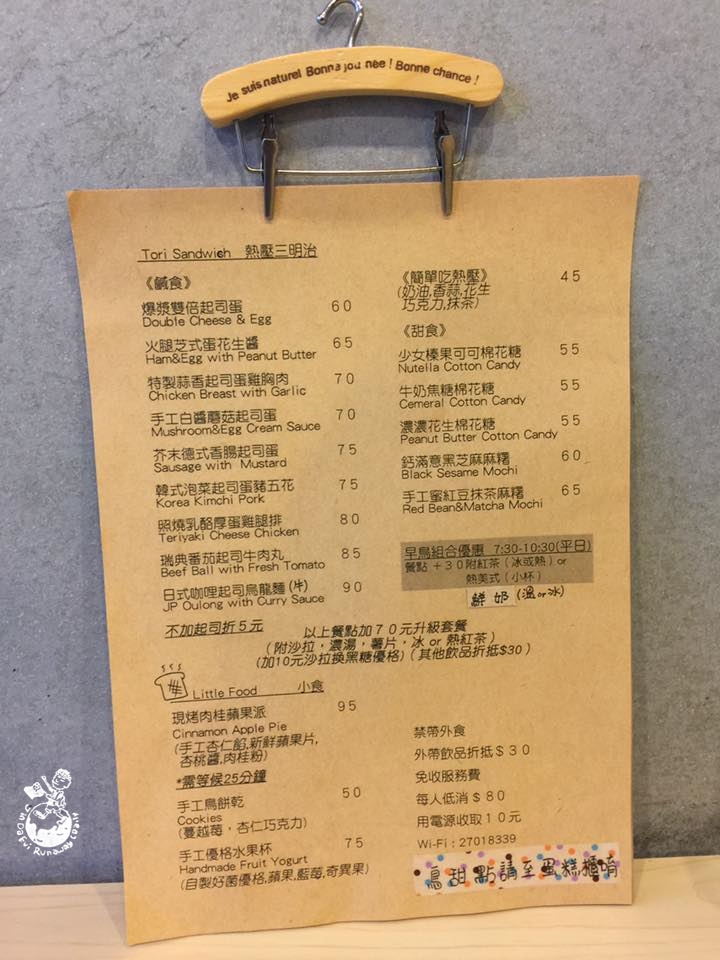 Je suis naturel Bonne journée ! Bonne chance !
Tori Sandwich 熱壓三明治
《鹹食》
爆漿雙倍起司蛋 60
Double Cheese & Egg
火腿芝式蛋花生醬 65
Ham&Egg with Peanut Butter
特製蒜香起司蛋雞胸肉 70
Chicken Breast with Garlic
手工白醬蘑菇起司蛋 70
Mushroom&Egg Cream Sauce
芥末德式香腸起司蛋 75
Sausage with Mustard
韓式泡菜起司蛋豬五花 75
Korea Kimchi Pork
照燒乳酪厚蛋雞腿排 80
Teriyaki Cheese Chicken
瑞典番茄起司牛肉丸 85
Beef Ball with Fresh Tomato
日式咖哩起司烏龍麵(牛) 90
JP Oulong with Curry Sauce
《簡單吃熱壓》 45
(奶油,香蒜,花生
巧克力,抹茶)
《甜食》
少女榛果可可棉花糖 55
Nutella Cotton Candy
牛奶焦糖棉花糖 55
Cemeral Cotton Candy
濃濃花生棉花糖 55
Peanut Butter Cotton Candy
鈣滿意黑芝麻麻糬 60
Black Sesame Mochi
手工蜜紅豆抹茶麻糬 65
Red Bean&Matcha Mochi
早鳥組合優惠 7:30-10:30(平日)
餐點＋30附紅茶（冰或熱）or
熱美式（小杯）
鮮奶(溫or冰)
不加起司折5元
以上餐點加70元升級套餐
（附沙拉，濃湯，薯片，冰 or 熱紅茶）
(加10元沙拉換黑糖優格)（其他飲品折抵$30）
Little Food 小食
現烤肉桂蘋果派 95
Cinnamon Apple Pie
(手工杏仁餡,新鮮蘋果片,
杏桃醬,肉桂粉)
*需等候25分鐘
手工鳥餅乾 50
Cookies
（蔓越莓，杏仁巧克力）
手工優格水果杯 75
Handmade Fruit Yogurt
(自製好菌優格,蘋果,藍莓,奇異果)
禁帶外食
外帶飲品折抵＄30
免收服務費
每人低消＄80
用電源收取10元
Wi-Fi：27018339
鳥甜點請至蛋糕櫃唷
JinDaFu's Runaway Diary